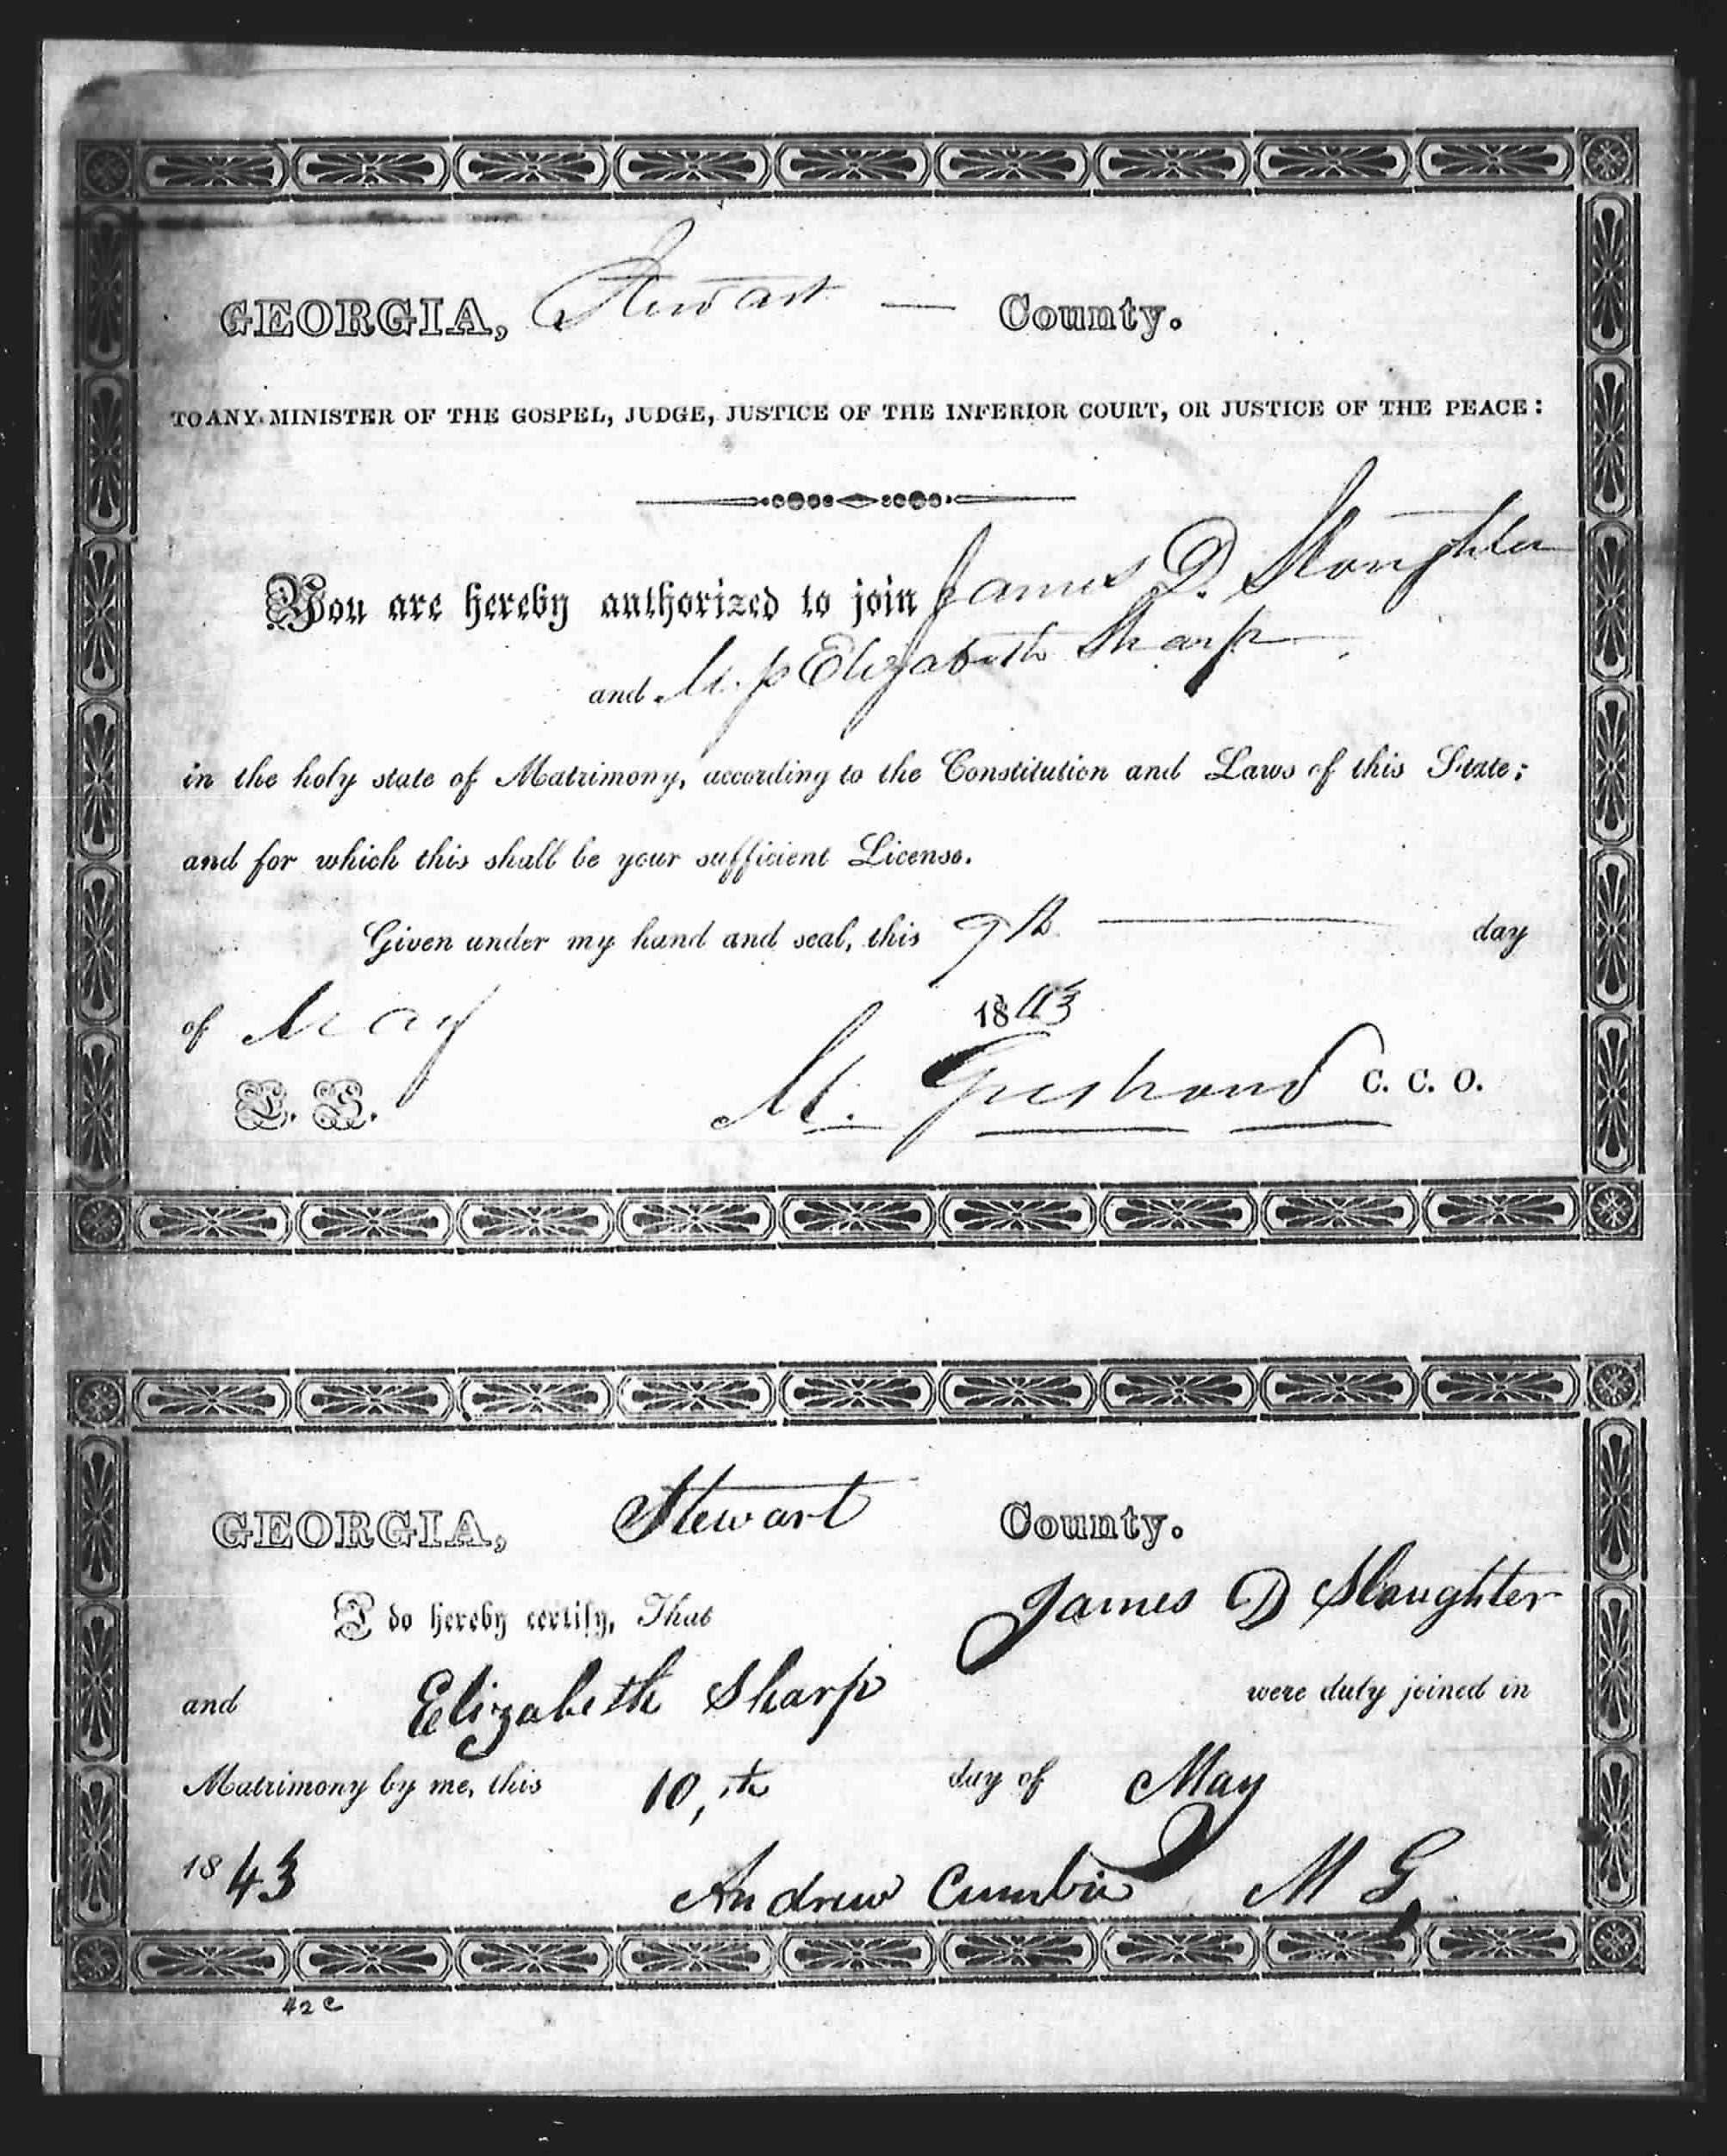 GEORGIA, Stewart — County.
TO ANY MINISTER OF THE GOSPEL, JUDGE, JUSTICE OF THE INFERIOR COURT, OR JUSTICE OF THE PEACE:
You are hereby authorized to join James D. Slaughter
and Miss Elizabeth Sharp
in the holy state of Matrimony, according to the Constitution and Laws of this State;
and for which this shall be your sufficient License.
Given under my hand and seal, this 9th day
of May 1843
L. S. M. Gresham C. C. O.
GEORGIA, Stewart County.
I do hereby certify, That James D Slaughter
and Elizabeth Sharp were duly joined in
Matrimony by me, this 10,th day of May
1843 Andrew Cumbie M G.
42 c